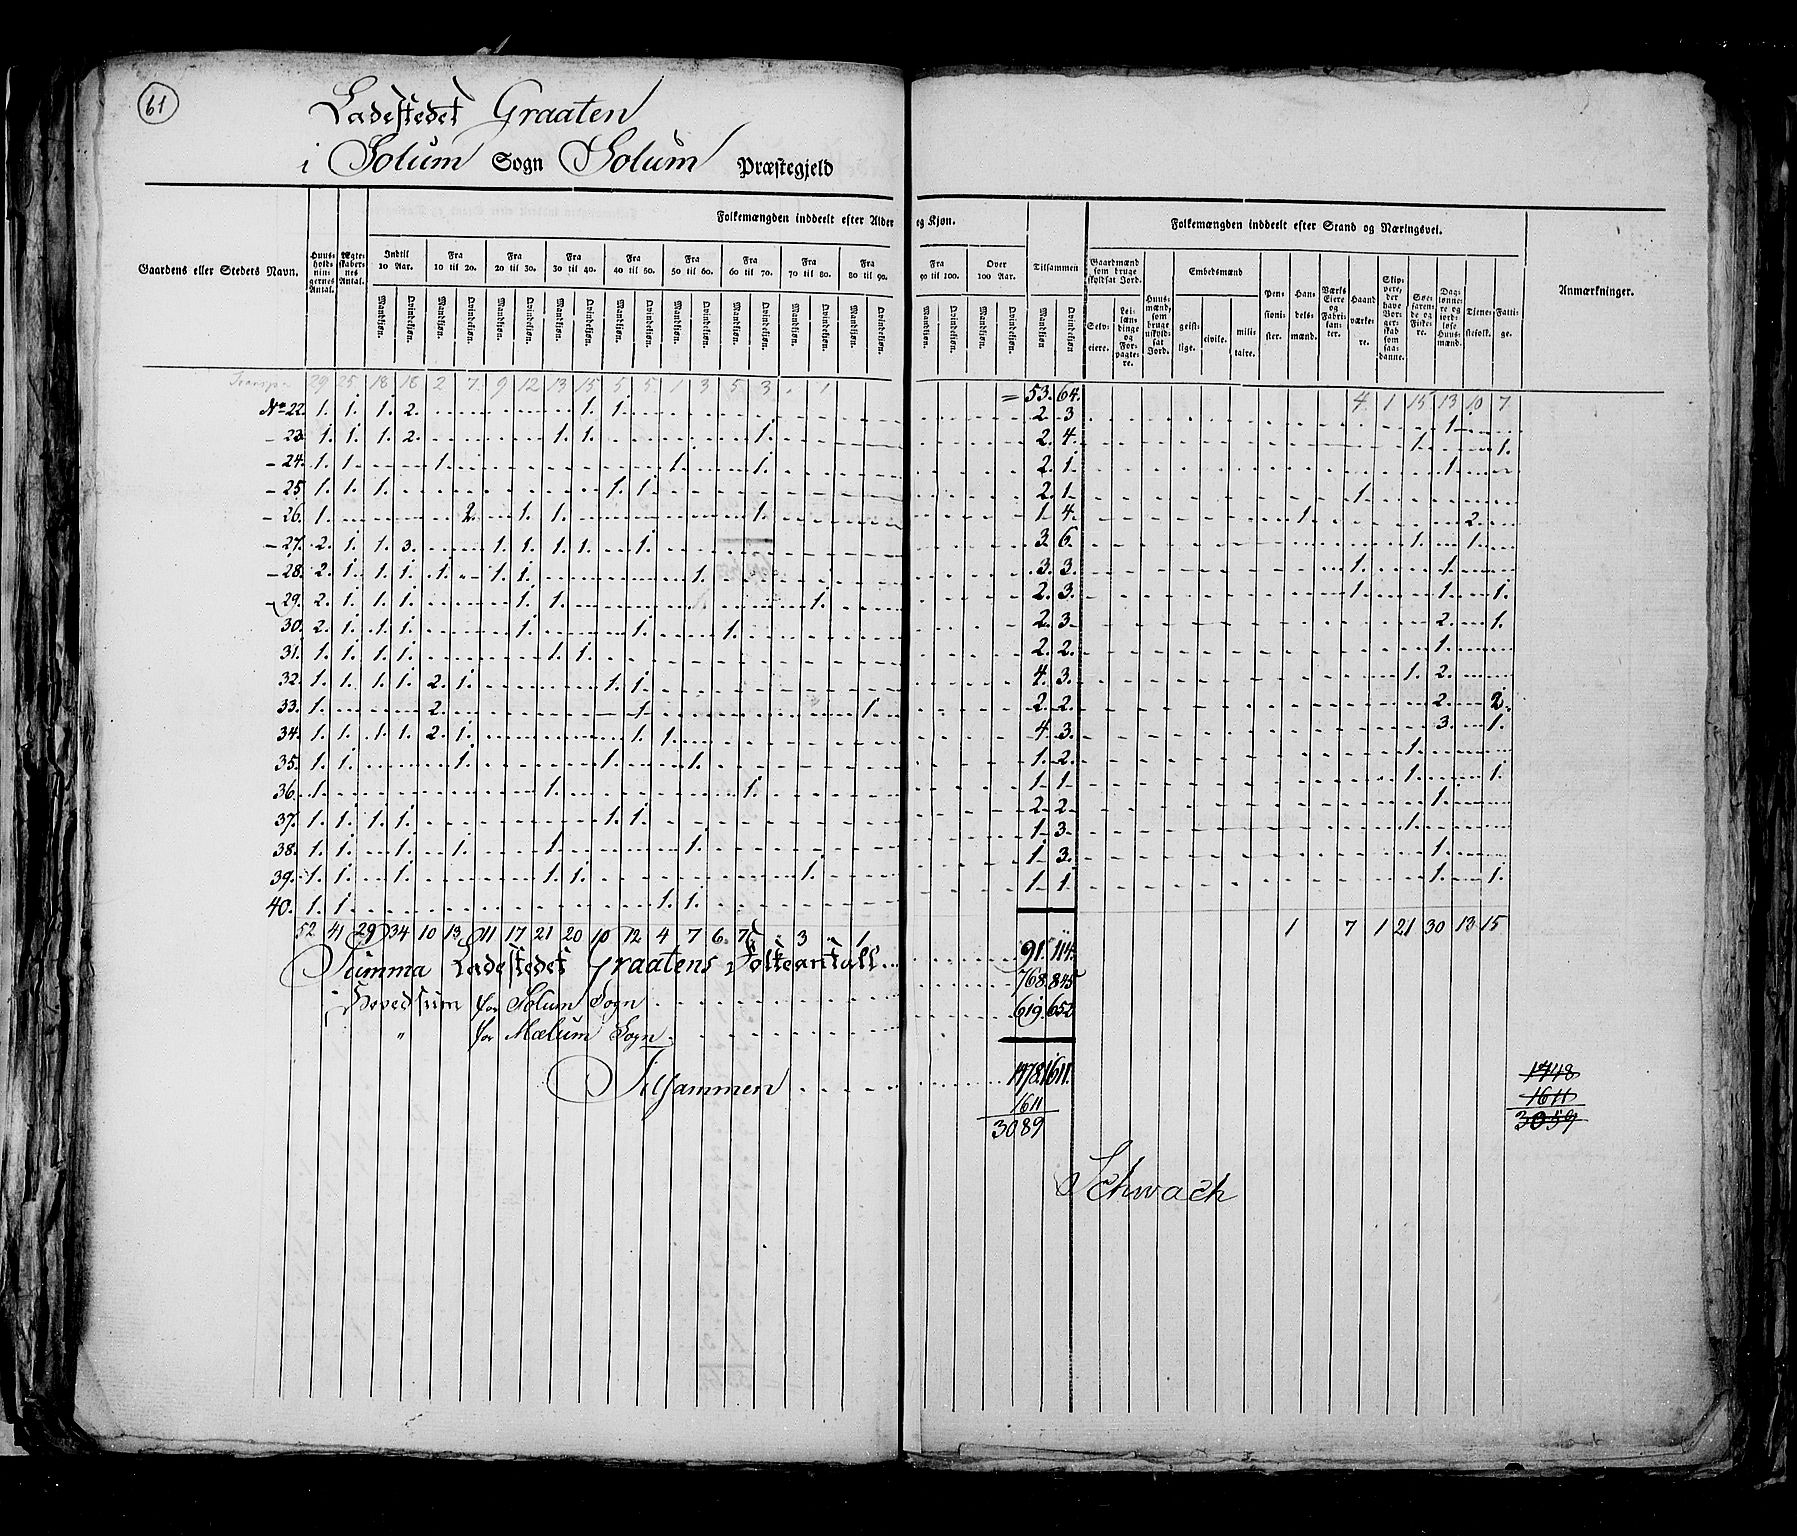 61
Ladestedet Graaten
i Solum Sogn Solum Præstegjeld
Folkemængden inddeelt efter Alder og Kjøn.
Folkemængden inddeelt efter Stand og Næringsvei.
Gaardens eller Stedets Navn.
Huus-holdnin-gernes Antal.
Ægte-skaber-nes Antal.
Indtil 10 Aar.
Fra 10 til 20.
Fra 20 til 30.
Fra 30 til 40.
Fra 40 til 50.
Fra 50 til 60.
Fra 60 til 70.
Fra 70 til 80.
Fra 80 til 90.
Fra 90 til 100.
Over 100 Aar.
Tilsammen
Mandkjøn. Qvindekjøn.
Gaardmænd som bruge skyldsat Jord.
Selveiere.
Leilændinge og Forpagtere.
Huusmænd, som bruge uskyldsat Jord.
Embedsmænd
geistlige. civile. militaire.
Pensionister.
Handelsmænd.
Værks Eiere og Fabrikanter.
Haandværkere.
Skippere, der have Borgerskab som saadanne.
Søefarende og Fiskere.
Daglønnere og jordløse Huusmænd.
Tjenestefolk.
Fattige.
Anmærkninger.
Transp. 29 25 18 18 2 7 9 12 13 15 5 5 1 3 5 3 . 1 = 53. 64. 4 1 15 13 10 7
No 22. 1. 1. 1. 2. 1. 1. 2. 3 1
- 23. 1. 1. 1. 2. 1. 1. 1. 2. 4. 1. 1.
- 24. 1. 1. 1. 1. 1. 2. 1. 1.
- 25. 1. 1. 1. 1. 1. 2. 1 1.
- 26. 1. 2. 1. 1. 1. 1 4. 1. 2.
- 27. 2. 1. 1. 3. 1. 1. 1. 1. 1. 3. 6. 1. 1.
- 28. 2. 1. 1. 1. 1. 1. 1. 1. 3. 3. 1. 1.
- 29. 2. 1. 1. 1. 1. 1. 1. 2. 3. 1. 1. 1.
30. 2. 1. 1. 1. 1. 1. 1. 2. 3. 2. 1.
31. 1. 1. 1. 1. 1. 1. 2. 2. 1.
32. 1. 1. 1. 1. 2. 1. 1. 1. 4. 3. 1. 2.
33. 1. 2. 1 1. 2. 2. 2. 2.
34. 1. 1. 1. 1. 2. 1. 1. 1. 4. 3. 3. 1.
35. 1. 1. 1. 1. 1. 1. 2. 1.
36. 1. 1. 1. 1. 1. 1. 1.
37. 1. 1. 1. 1. 1. 1. 2. 2. 1.
38. 1. 1. 1. 1. 1. 1. 1 3. 1.
39. 1. 1. 1. 1. 1. 1. 1 3. 1.
40. 1. 1. 1. 1. 1 1. 1. 1.
52 41 29 34 10 13 11 17 21 20 10 12 4 7 6 7 3 1 1 7 1 21 30 13 15
Summa Ladestedet Graatens Folkeantall 91. 114.
Hovedsum for Solum Sogn 768. 845
" for Mælum Sogn 619. 652
Tilsammen 1478. 1611.
1611
3089
1448
1611
3059
Schwach